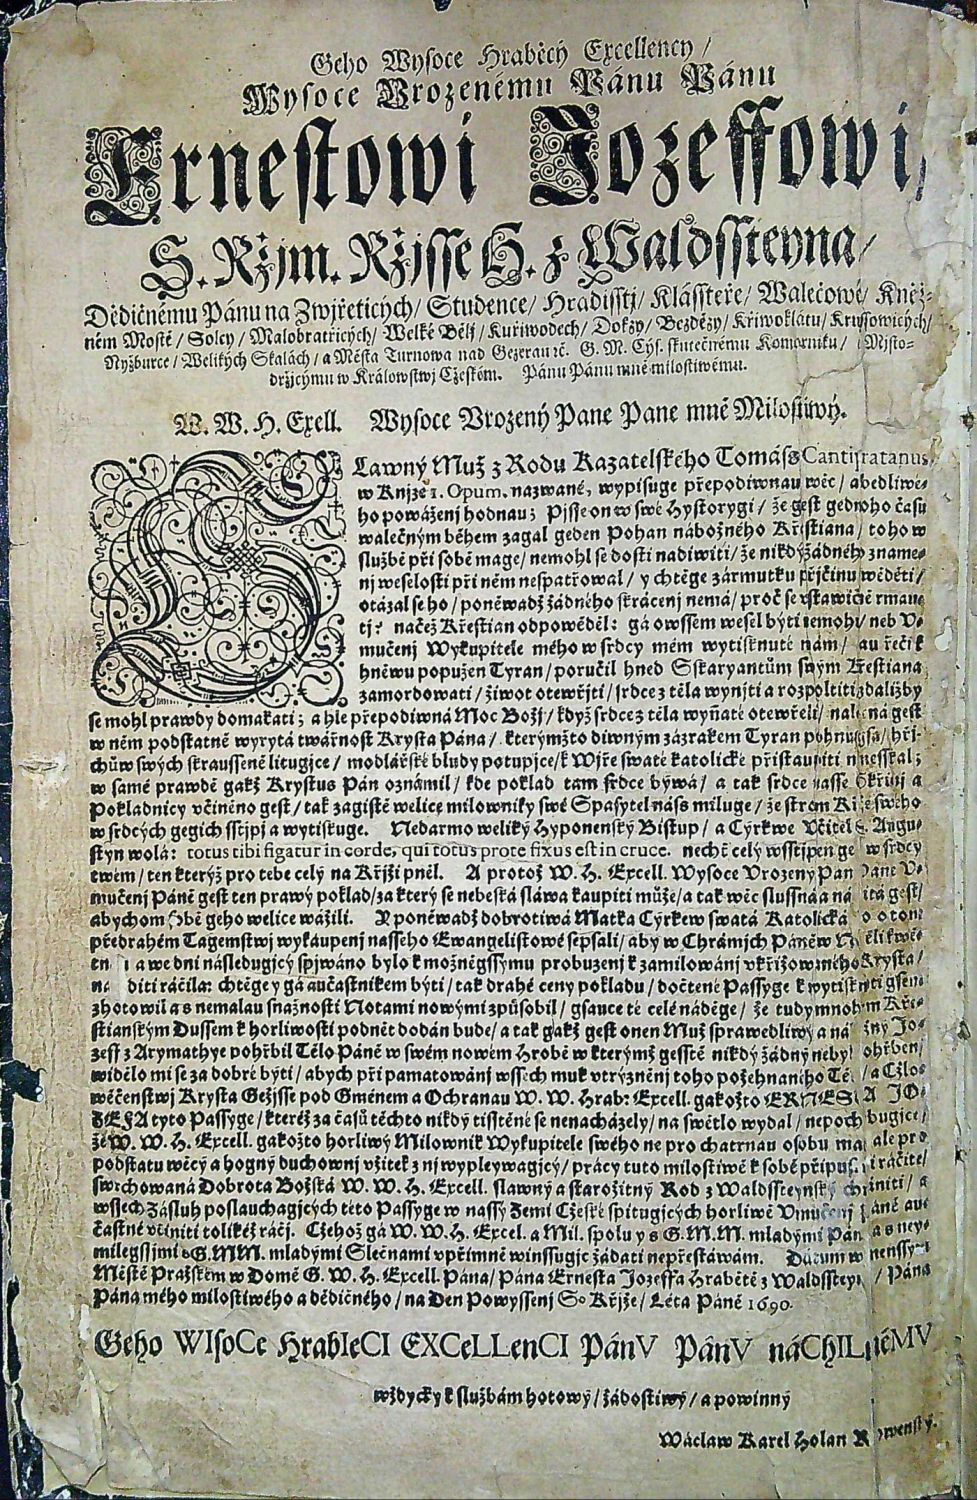 Geho Wysoce Hraběcý Excellency /
Wysoce Vrozenému Pánu Pánu
Ernestowi Jozeffowi /
S. Ržjm. Ržjsse H. z Waldssteyna /
Dědičnému Pánu na Zwjřeticých / Studence / Hradisstj / Klásteře / Walečowě / Kněž-
ném Mostě / Solcy / Malobratřicých / Welké Bělj / Kuřiwodech / Dokzy / Bezdězy / Křiwoklátu / Krussowicých /
Nyžburce / Welikých Skalách / a Města Turnowa nad Gezerau ꝛč. G. M. Cýs. skutečnému Komorniku / Mjsto-
držjcýmu w Králowstwj Cžeském. Pánu Pánu mně milostiwému.
W. W. H. Excll. Wysoce Vrozený Pane Pane mně Milostiwý.
SLawný Muž z Rodu Kazatelského Tomáss Cantipratanus,
w Knjze 1. Opum. nazwané, wypisuge přepodiwnau wěc / a bedliwé-
ho powáženj hodnau; Pjsse on w swé Hystorygi / že gest gednoho času
walečným během zagal geden Pohan nábožného Křistiana / toho w
službě při sobě mage / nemohl se dosti nadiwiti / že nikdý žádného zname-
nj weselosti při něm nespatřowal / y chtěge zármutku přjčinu wěděti /
otázal se ho / poněwadž žádného skrácenj nemá / proč se vstawičně rmau-
tj? načež Křestian odpowěděl: gá owssem wesel býti nemohu / neb V-
mučenj Wykupitele mého w srdcy mém wytisknuté mám / au řeči k
hněwu popužen Tyran / poručil hned Sskaryantům swým Křestiana
zamordowati / žiwot otewřjti / srdce z těla wynjti a rozpoltiti zdaližby
se mohl prawdy domakati; a hle přepodiwná Moc Božj / když srdce z těla wyňaté otewřeli / nalezená gest
w něm podstatně wyrytá twářnost Krysta Pána / kterýmžto diwným zázrakem Tyran pohnut gsa / hřj-
chůw swých skraussené litugjce / modlářské bludy potupjce / k Wjře swaté katolické přistaupiti nemesskal;
w samé prawdě gakž Krystus Pán oznámil / kde poklad tam srdce býwá / a tak srdce nasse Skřjnj a
Pokladnicy včiněno gest / tak zagisté welice milowniky swé Spasytel náss miluge / že strom Křjže swého
w srdcých gegich sstjpj a wytiskuge. Nedarmo weliký Hyponenský Biskup / a Cýrkwe Včitel S. Augu-
styn wolá: totus tibi figatur in corde, qui totus pro te fixus est in cruce. nechť celý wsstjpen ge w srdcy
twém / ten kterýž pro tebe celý na Křjži pněl. A protož W. H. Excell. Wysoce Vrozený Pan Pane V-
mučenj Páně gest ten prawý poklad / za který se nebeská sláwa kaupiti může / a tak wěc slussná a náležitá gest /
abychom sobě geho welice wážili. Y poněwadž dobrotiwá Matka Cýrkew swatá Katolická to o tom
předrahém Tagemstwj wykaupenj nasseho Ewangelistowé sepsali / aby w Chrámjch Páně w Neděli kwět-
a we dni následugjcý spjwáno bylo k možněgssýmu probuzenj k zamilowánj vkřižowaného Krysta /
djti ráčila: chtěge y gá aučastnjkem býti / tak drahé ceny pokladu / dočtené Passyge k wytisknutj gsem
zhotowil a s nemalau snažnostj Notami nowými způsobil / gsauce té celé náděge / že tudy mnohým Křj-
stianským Dussem k horliwosti podnět dodán bude / a tak gakž gest onen Muž sprawedliwý a nábožný Jo-
zeff z Arymathye pohřbil Tělo Páně w swém nowém Hrobě w kterýmž gesstě nikdý žádný nebyl pohřben /
widělo mi se za dobré býti / abych při pamatowánj wssech muk vtrýzněnj toho požehnaného Těla / a Cžlo-
wěčenstwj Krysta Gežjsse pod Gménem a Ochranau W. W. Hrab: Excell. gakožto ERNESTA JO-
ZEFA tyto Passyge / kteréž za časů těchto nikdý tisstěné se nenacházely / na swětlo wydal / nepochybugjce /
že W. W. H. Excell. gakožto horliwý Milownik Wykupitele swého ne pro chatrnau osobu mau ale pro
podstatu wěcý a hogný duchownj vžitek z nj wyplewagjcý / prácy tuto milostiwě k sobě připustiti ráčjte /
swrchowaná Dobrota Božská W. W. H. Excell. slawný a starožitný Rod z Waldssteynský chrániti / a
wssjech zásluh poslauchagjcých této Passyge w nassý Zemi Cžeské spitugjcých horliwě Vmučenj Páně au-
častné včiniti toliképráčj. Cžehož gá W. W. H. Excel. a Mil. spolu y s G. M. M. mladými Pány a s ney-
milegssjmi G. MM. mladými Slečnami vpřjmně winssugjc žádati nepřestáwám. Datum w nenssým
Městě Pražském w Domě G. W. H. Excell. Pána / Pána Ernesta Jozeffa Hraběte z Waldssteyna / Pána
Pána mého milostiwého a dědičného / na Den Powyssenj S° Křjže / Léta Páně 1690.
Geho WIsoCe HrabIeCI EXCeLLenCI PánV PánV náChILněMV
wždycky k službám hotowý / žádostiwý / a powinný
Wácslaw Karel Holan Rowenský.